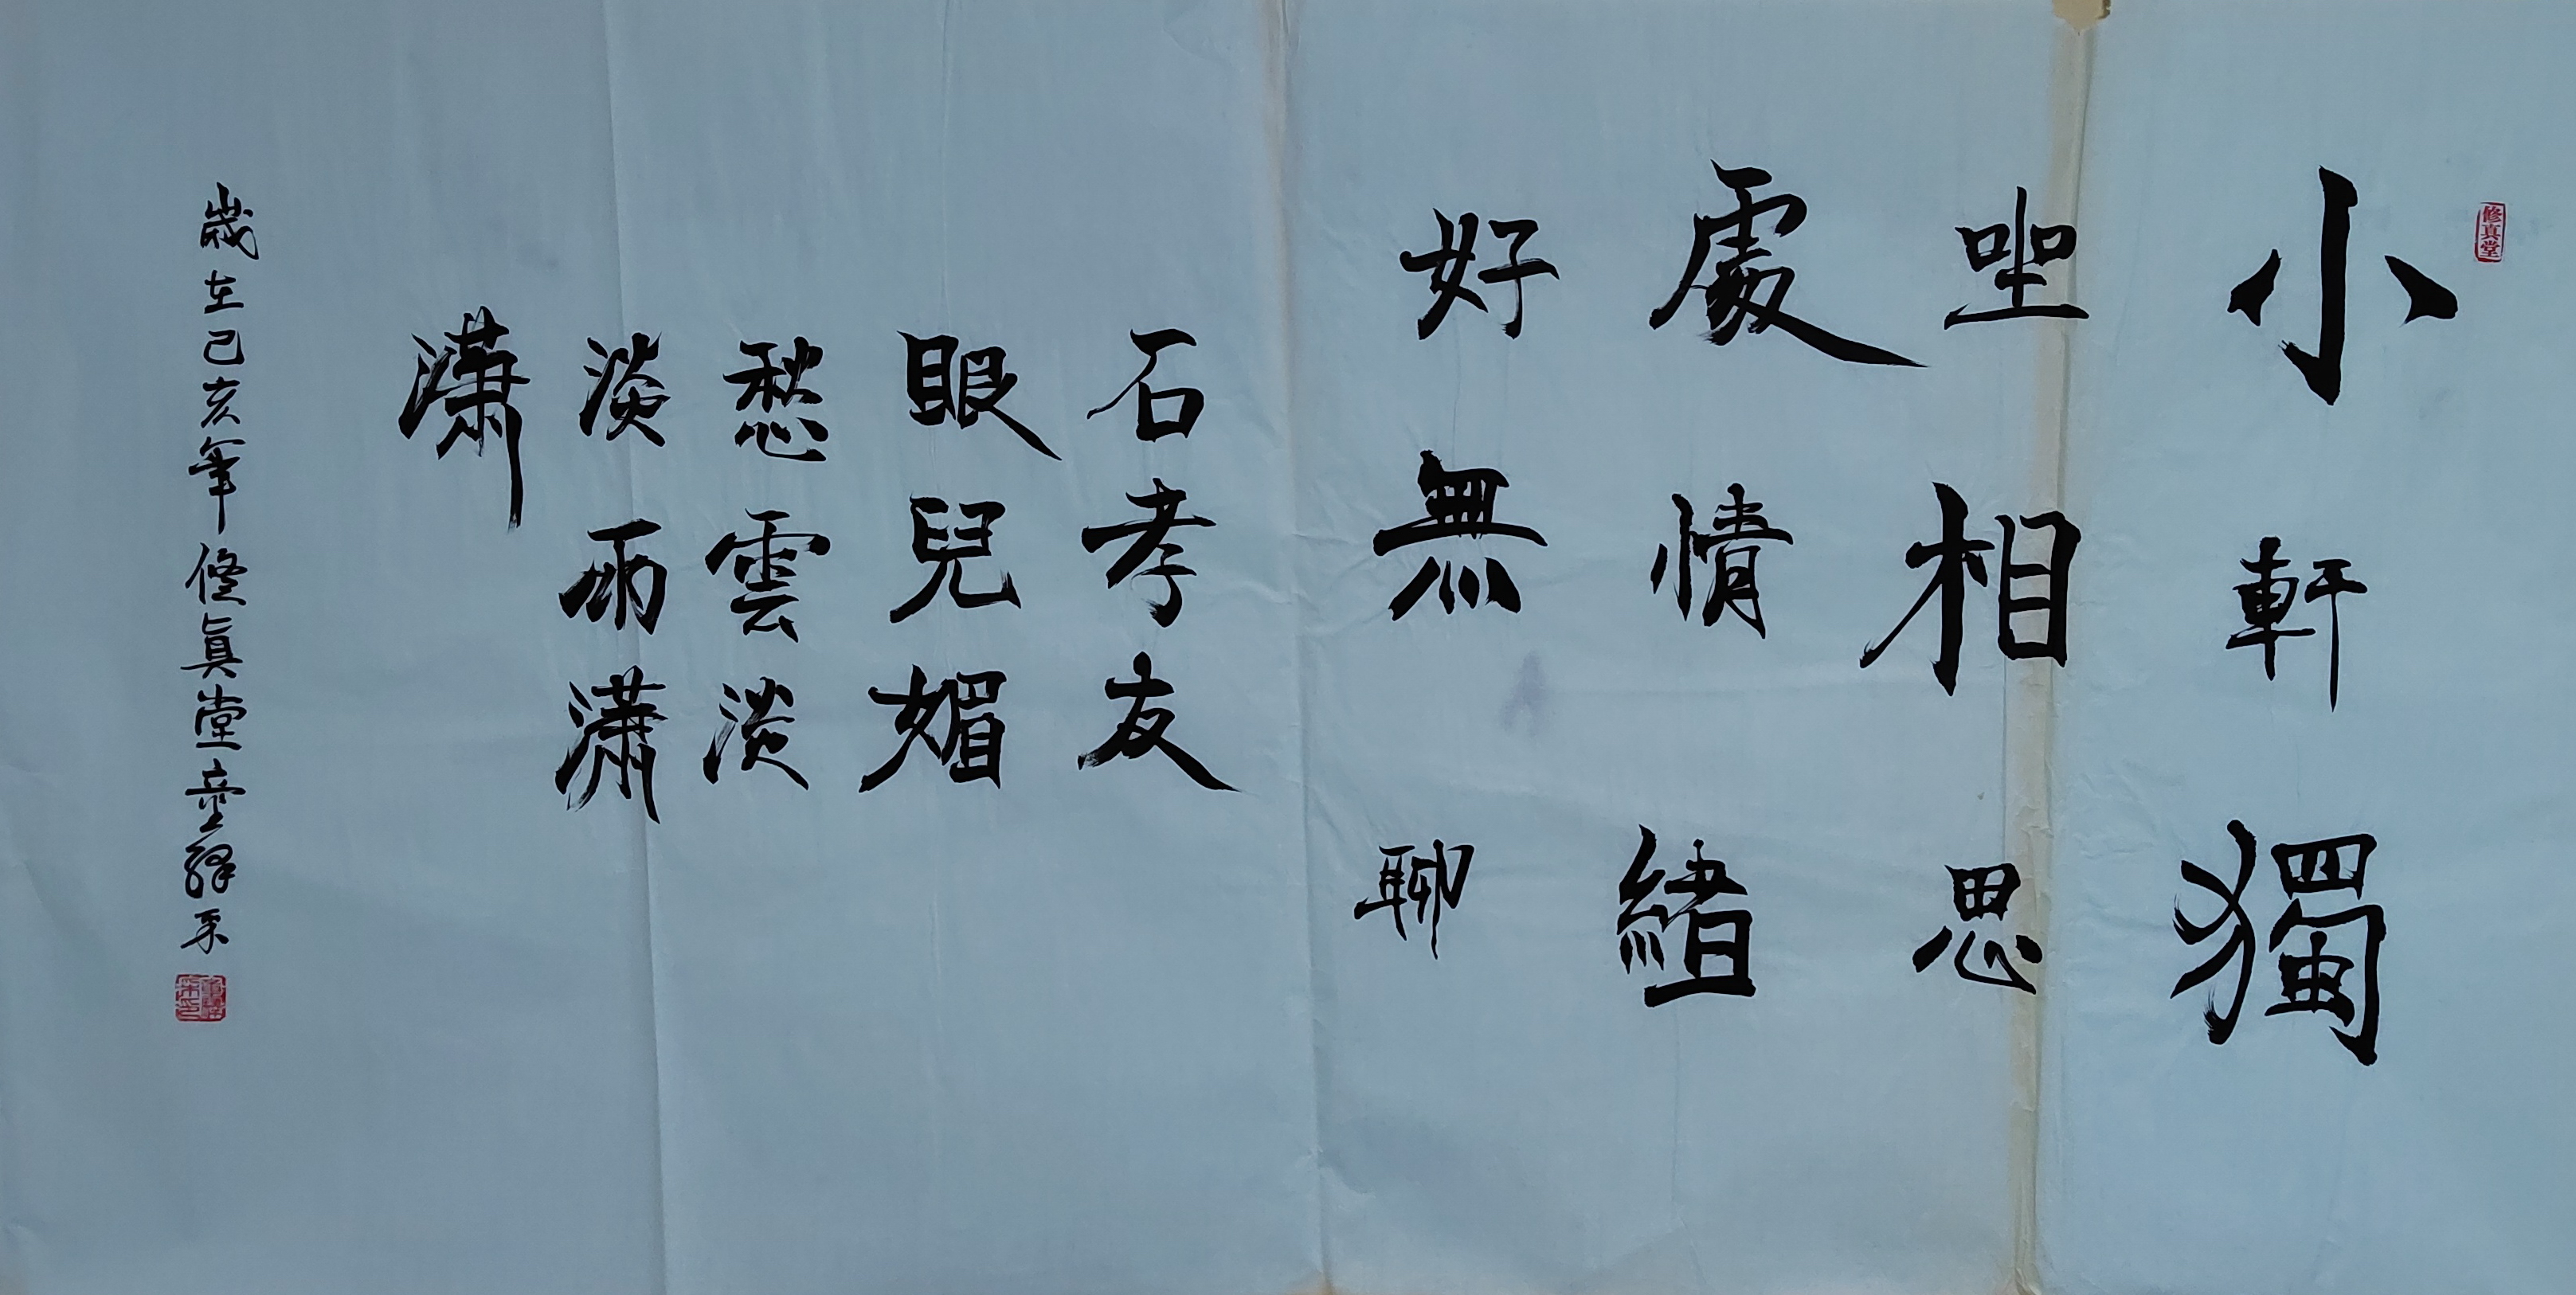 修真堂
小軒獨
坐相思
處情緒
好無聊
石孝友
眼兒媚
愁雲淡
淡雨瀟
瀟
歲在己亥年修真堂童繹采